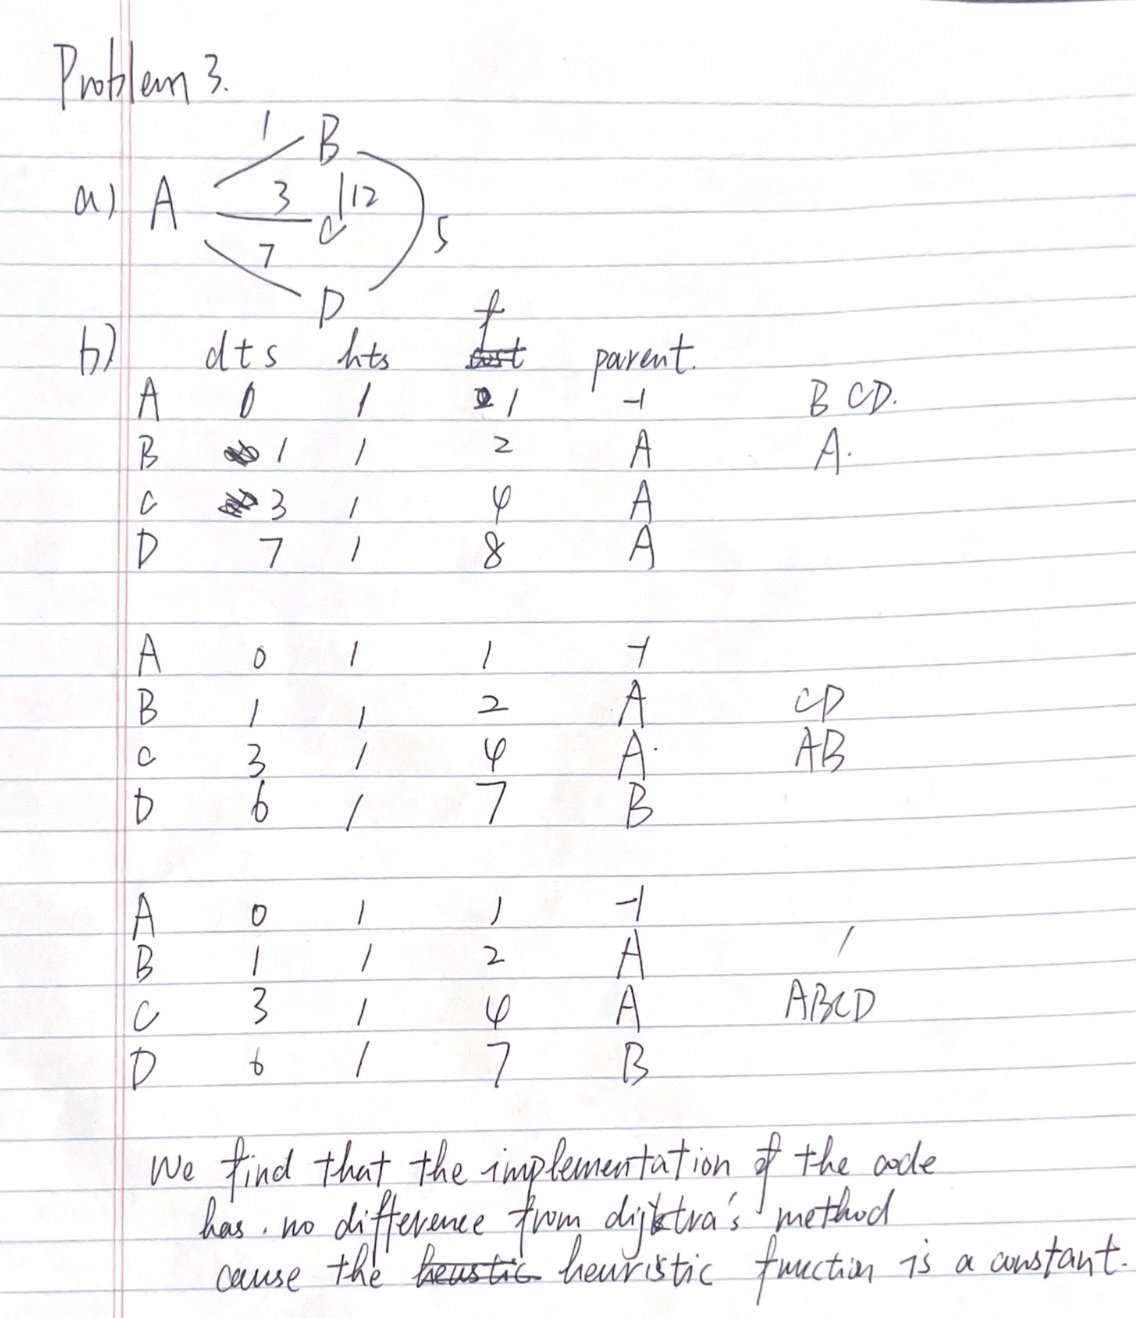 Problem 3.
1 B
a) A 3 12
C 5
7
D
b) dts hts f parent.
A 0 1 1 -1 B CD.
B 1 1 2 A A.
C 3 1 4 A
D 7 1 8 A
A 0 1 1 -1
B 1 1 2 A CD
C 3 1 4 A. AB
D 6 1 7 B
A 0 1 1 -1
B 1 1 2 A /
C 3 1 4 A ABCD
D 6 1 7 B
We find that the implementation of the code
has. no difference from dijktra's method
cause the heuristic function is a constant.